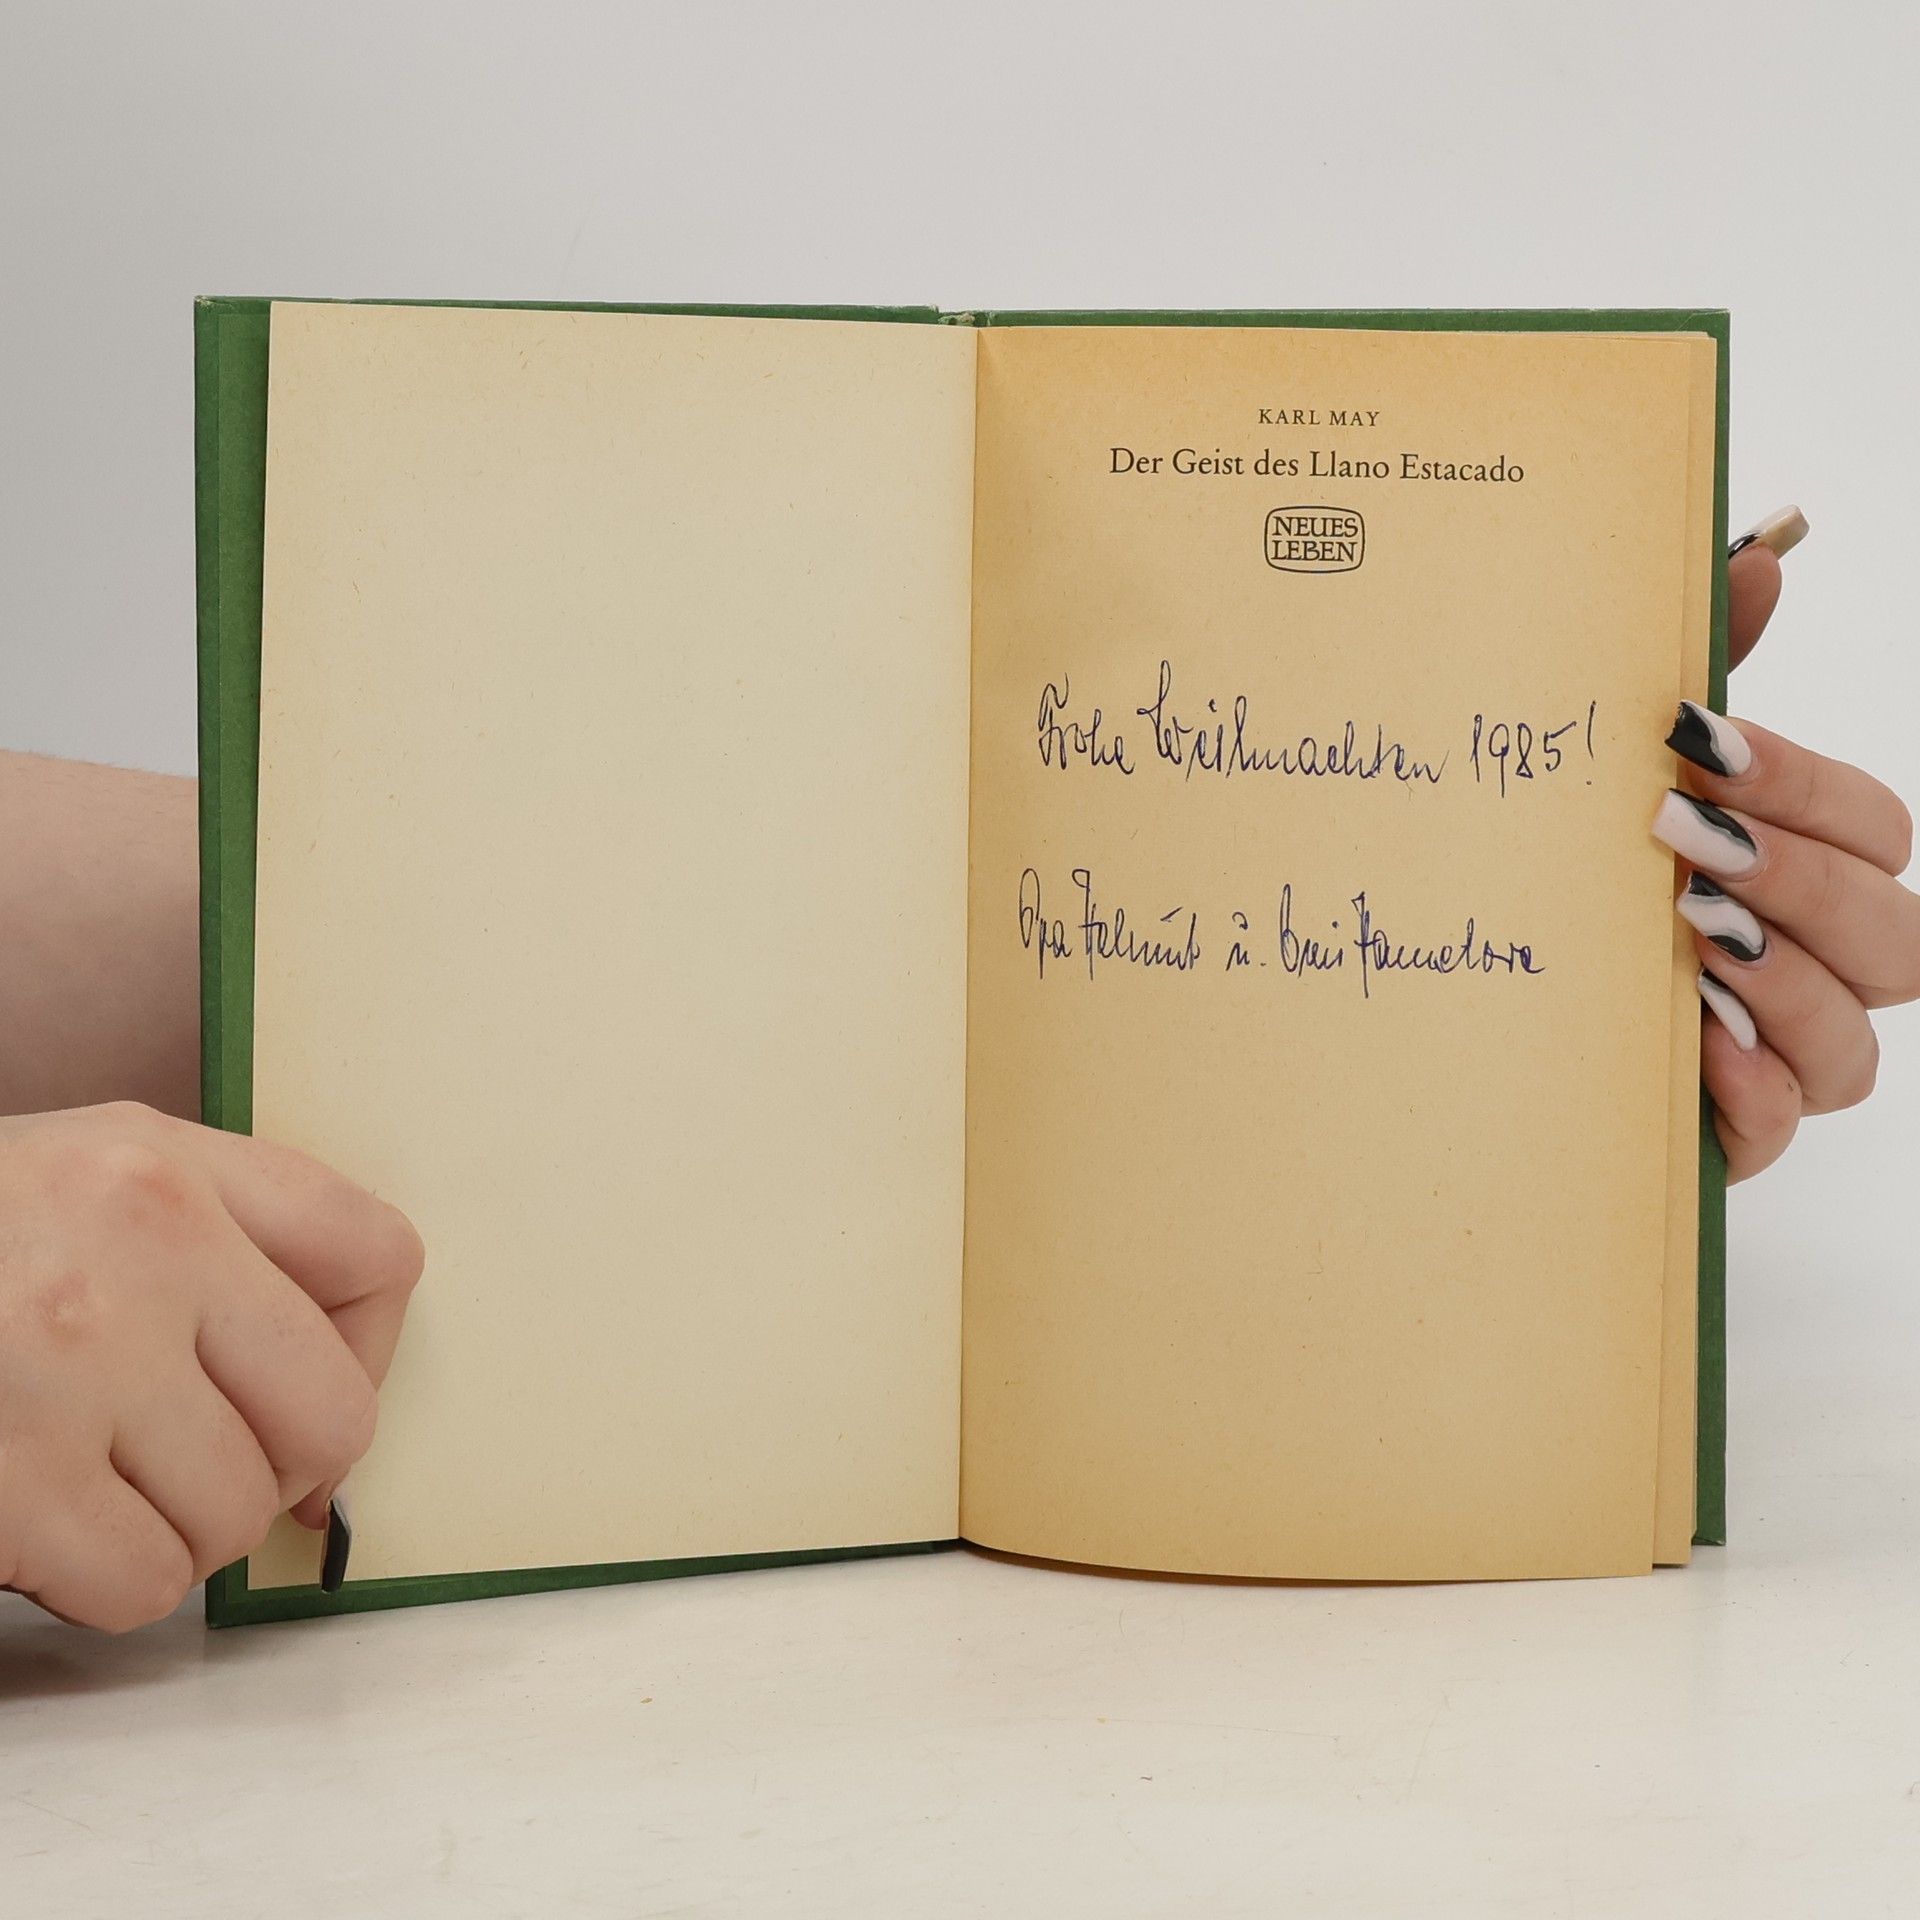 KARL MAY
Der Geist des Llano Estacado
NEUES
LEBEN
Frohe Weihnachten 1985!
Opa Helmut u. Hannelore